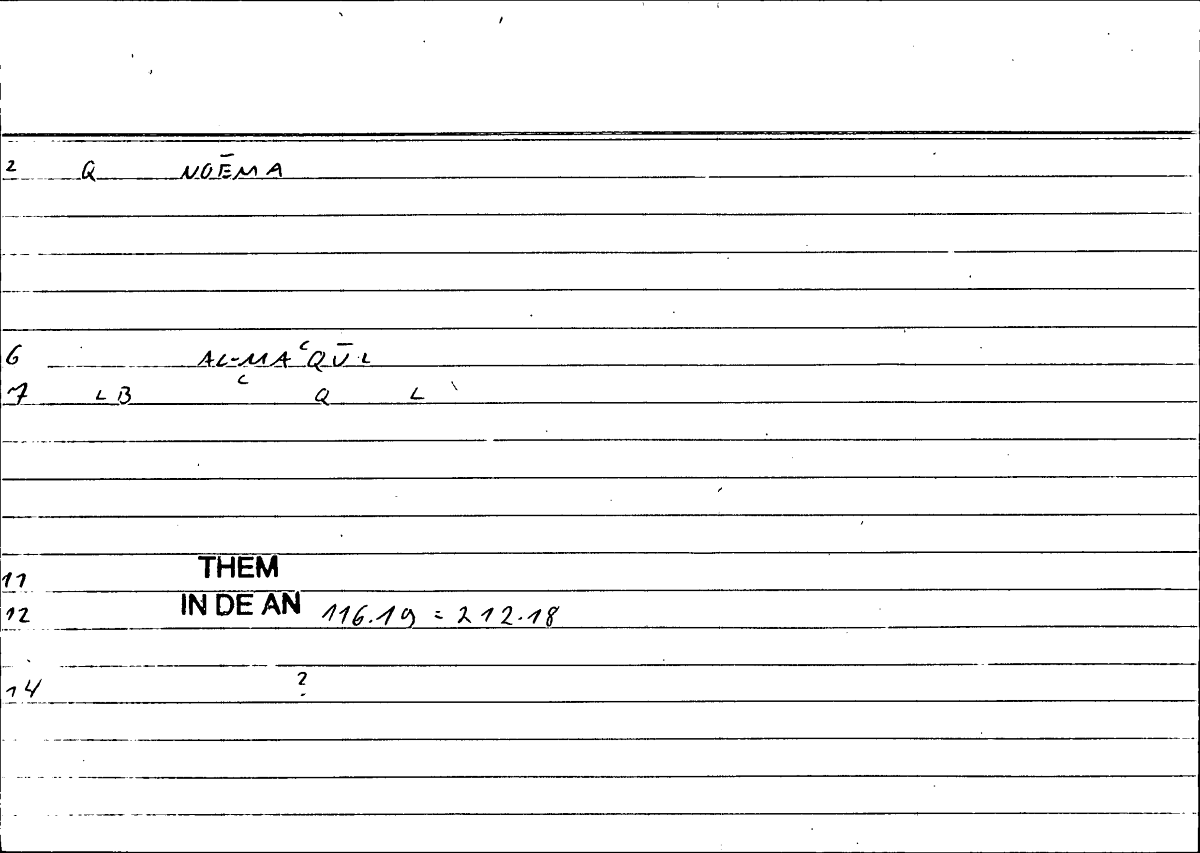 2 Q NOĒMA
6 AL-MAʿQŪL
7 LB ʿ Q L
11 THEM
12 IN DE AN 116.19 = 212.18
14 ?